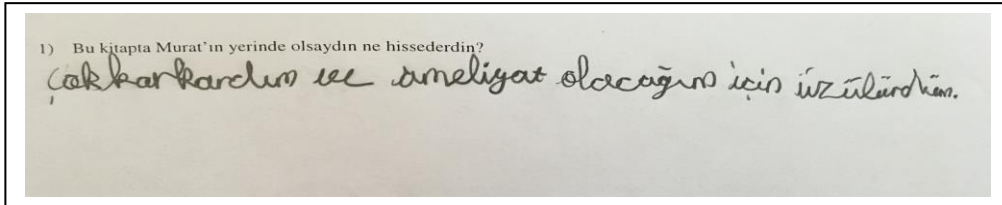 1) Bu kitapta Murat'ın yerinde olsaydın ne hissederdin?
Çok korkardım ve ameliyat olacağım için üzülürdüm.